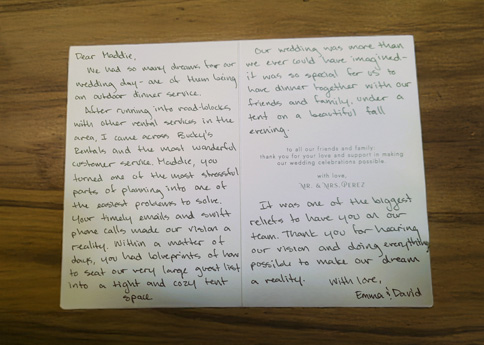 Dear Maddie,
We had so many dreams for our
wedding day - one of them being
an outdoor dinner service.
After running into road-blocks
with other rental services in the
area, I came across Bucky's
Rentals and the most wonderful
customer service. Maddie, you
turned one of the most stressful
parts of planning into one of
the easiest problems to solve.
Your timely emails and swift
phone calls made our vision a
reality. Within a matter of
days, you had blueprints of how
to seat our very large guest list
into a tight and cozy tent
space
Our wedding was more than
we ever could have imagined-
it was so special for us to
have dinner together with our
friends and family, under a
tent on a beautiful fall
evening.
to all our friends and family:
thank you for your love and support in making
our wedding celebrations possible.
with love,
MR. & MRS. PEREZ
It was one of the biggest
reliefs to have you on our
team. Thank you for hearing
our vision and doing everything
possible to make our dream
a reality.
With love,
Emma & David